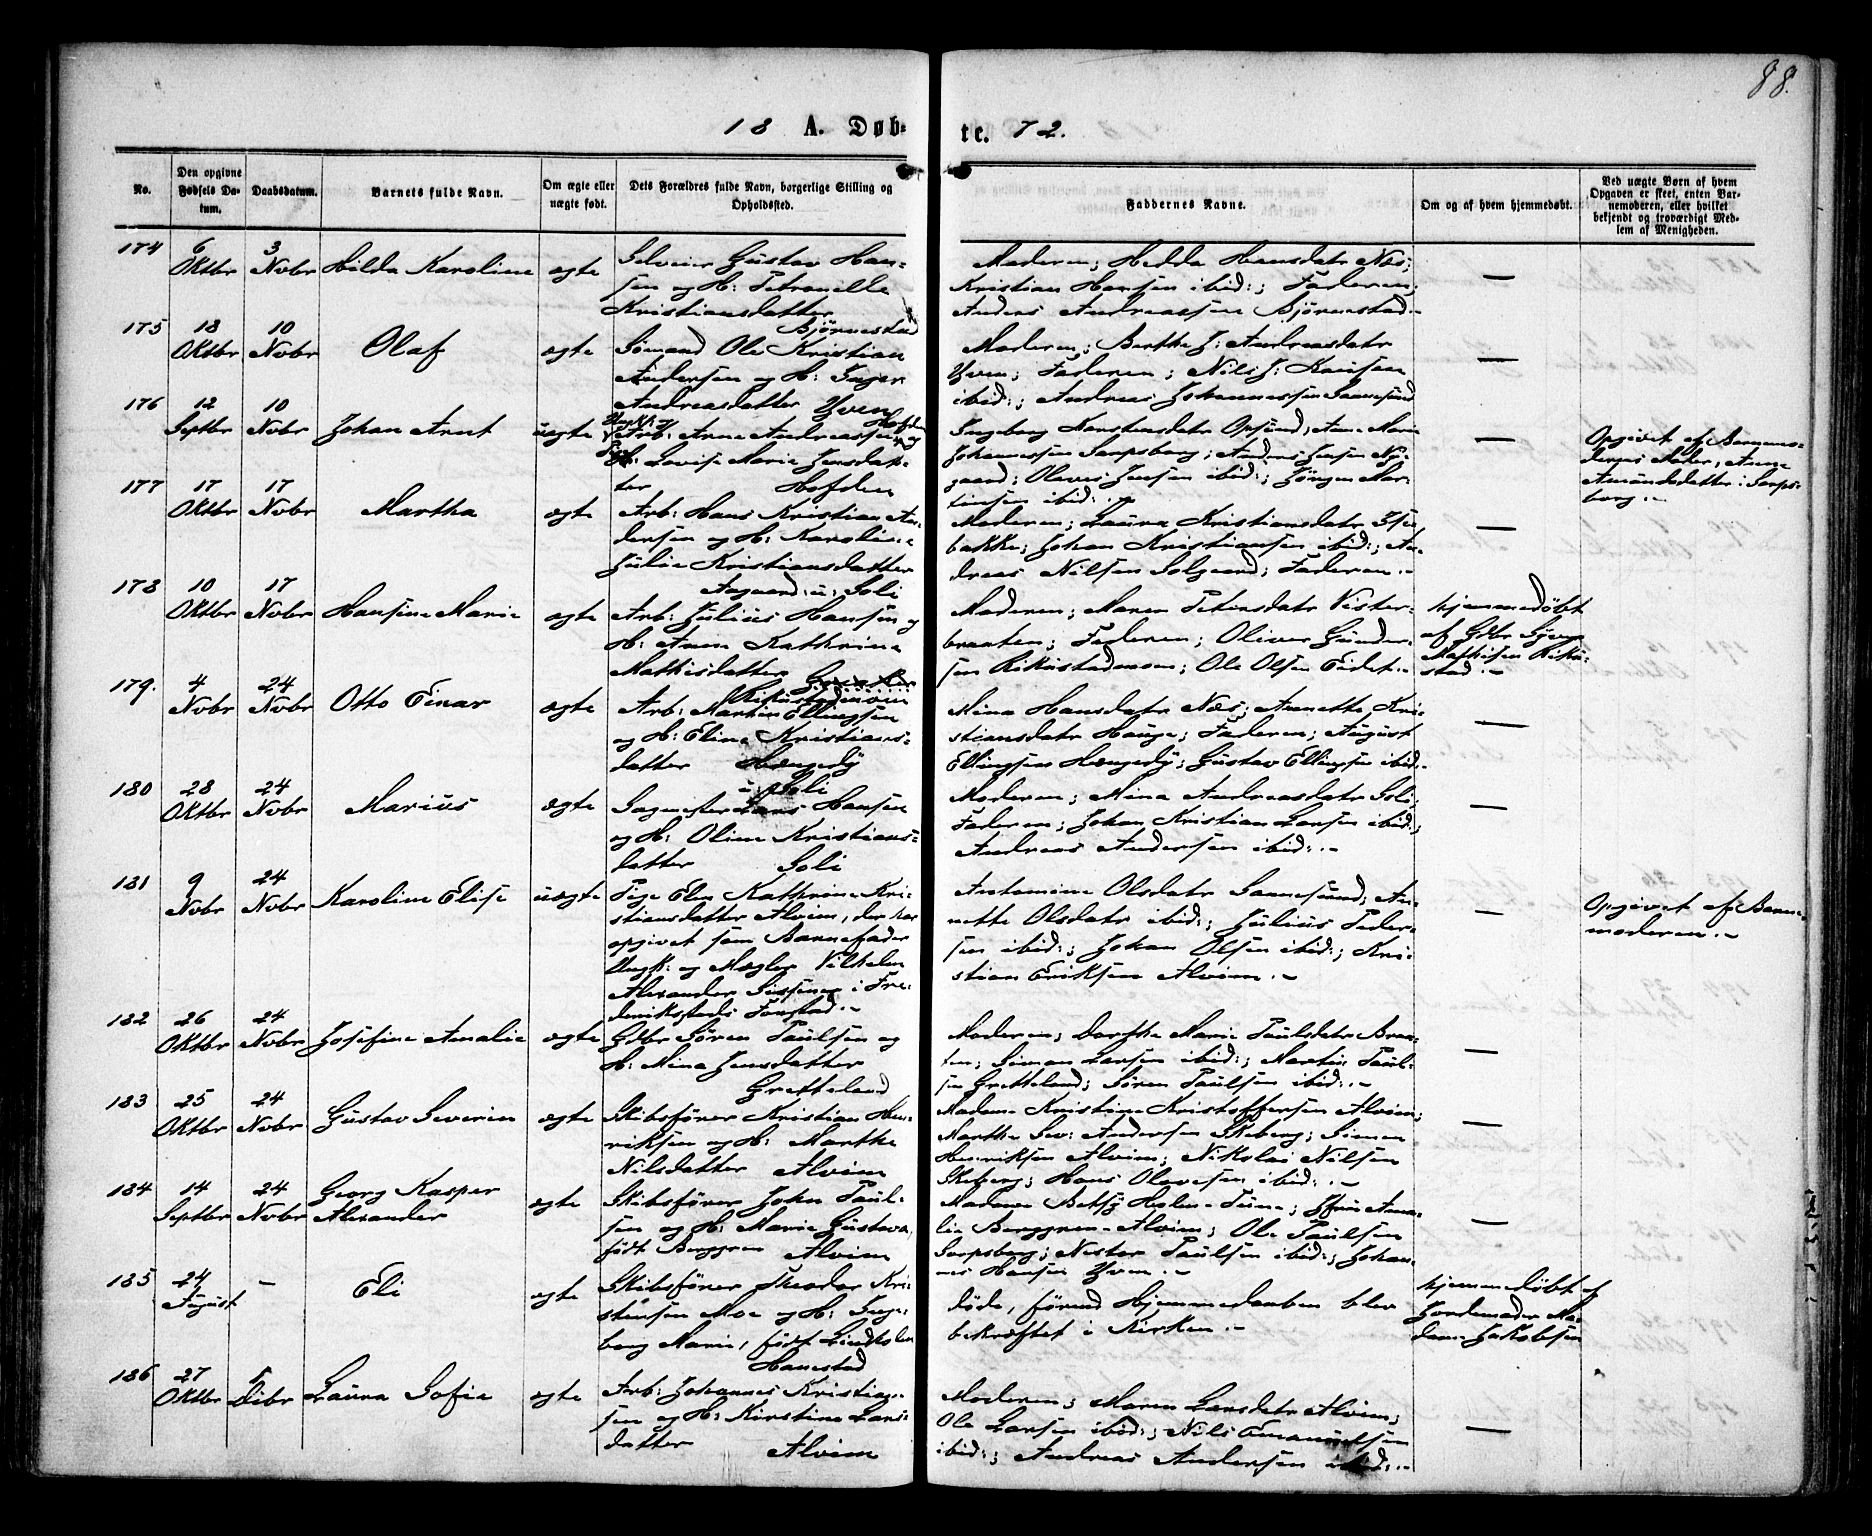 88.
18 A. Døb-
te. 72.
No.
Den opgivne
Fødsels Da-
tum.
Daabsdatum.
Barnets fulde Navn.
Om ægte eller
uægte født.
Dets Forældres fulde Navn, borgerlige Stilling og
Opholdssted.
Faddernes Navne.
Om og af hvem hjemmedøbt.
Ved uægte Børn af hvem
Opgaven er skeet, enten Bar-
nemoderen, eller hvilket
bekjendt og troværdigt Med-
lem af Menigheden.
174
6 Oktbr
3 Novbr
Hilda Karoline
ægte
Selveier Gustav Han-
sen og H: Petronelle
Kristiansdatter
Bjørnestad
Moderen; Hedda Hansdatr Næs;
Kristian Hansen ibid:; Faderen;
Anders Andreassen Bjørnestad
—
175
18 Oktbr
10 Novbr
Olaf
ægte
Sømand Ole Kristian
Andersen og H: Inger
Andreasdatter Yven
Moderen; Berthe J: Andreasdatr
Yven; Faderen; Nils J: Knutsen
ibid:; Andreas Johannessen Sannesund
—
176
12 Septbr
10 Novbr
Johan Arnt
uægte
Arb: Arne Andreassen
Hafslund og
Lovise Marie Jensdat-
ter Hafslund
Ingeborg Karstensdatr Opsund; Anne Marie
Johannessen Sarpsborg; Anders Jensen Ny-
gaard; Olaves Jensen ibid:; Jørgen Mar-
tinsen ibid:.-
—
Opgivet af Barnemo-
derens Moder, Anne
Amundsdatter i Sarps-
borg.-
177
17 Oktbr
17 Novbr
Martha
ægte
Arb: Hans Kristian An-
dersen og H: Karoline
Julie Kristiansdatter
Aagaard u: Soli
Moderen; Laura Kristiansdatr Ise-
bakke; Johan Kristiansen ibid:; An-
dreas Nilsen Solgaard; Faderen.-
—
178
10 Oktbr
17 Novbr
Hansine Marie
ægte
Arb: Julius Hansen og
H: Anne Kathrine
Mathisdatter
Moderen; Maren Petersdatr Vister-
braaten; Faderen; Oliver Gunder-
sen Kikustadmoen; Ole Olsen Eidet.-
hjemmedøbt
af Gdbr Syver
Mathisen Kiku-
stad.-
179.
4 Novbr
24 Novbr
Otto Einar
ægte
Arb: Martin Ellingsen
og H: Eline Kristians-
datter Hængedy
u: Soli
Mina Hansdatr Næs; Annette Kri-
stiansdatr Hauge; Faderen; August
Ellingsen Hængedy; Gustav Ellingsen ibid.
—
180
28 Oktbr
24 Novbr
Marius
ægte
Sagmester Lars Hansen
og H: Oline Kristians-
datter Soli
Moderen; Mina Andreasdatr Soli;
Faderen; Johan Kristian Larsen ibid:;
Andreas Andersen ibid:.-
—
181
9 Novbr
24 Novbr
Karoline Elise
uægte
Pige Elen Kathrine Kri-
stiansdatter Alvim, der har
opgivet som Barnefader
Ungk: og Mægler Vilhelm
Alexander i Fre-
derikstads Forstad.-
Antomine Olsdatr Sannesund; An-
nette Olsdatr ibid:; Julius Peder-
sen ibid:; Johan Olsen ibid:; Kri-
stian Eriksen Alvim.-
—
Opgivet af Barne-
moderen.-
182
26 Oktbr
24 Novbr
Josefine Amalie
ægte
Gdbr Søren Paulsen og
H: Mina Jensdatter
Gretteland
Moderen; Dorthe Marie Paulsdatr Braa-
ten; Simon Larsen ibid:; Martin Paul-
sen Gretteland; Søren Paulsen ibid:.-
—
183
25 Oktbr
24 Novbr
Gustav Severin
ægte
Skibsfører Kristian Hen-
riksen og H: Marthe
Nilsdatter Alvim
Madame Kristine Kristoffersen Alvim;
Marthe Sev: Andersen Skeberg; Simen
Henriksen Alvim; Nikolai Nilsen
Skeberg; Hans Olavesen ibid:.-
—
184
14 Septbr
24 Novbr
Georg Kasper
Alexander
ægte
Skibsfører John Paul-
sen og H: Marie Gustava,
født Berggren Alvim
Madame Betsy Holm-Tune; Jfru Ama-
lie Berggren-Alvim; Ole Paulsen
Sarpsborg; Nestor Paulsen ibid:; Johan-
nes Hansen Yven.-
—
185
24 August
–
Eli
ægte
Skibsfører Theodor Kri-
stensen Moe og H: Inge-
borg Marie, født Lindtslev
Hanestad
døde, førend Hjemmedaaben blev
bekræftet i Kirken.-
hjemmedøbt af
Jordemoder Ma-
dame Jakobsen
186
27 Oktbr
5 Dcbr
Laura Sofie
ægte
Arb: Johannes Kristian-
sen og H: Kirstine Lars-
datter Alvim
Moderen; Maren Larsdatr Alvim;
Ole Larsen ibid:; Nils Emanuelsen
ibid:; Andreas Andersen ibid:.-
—